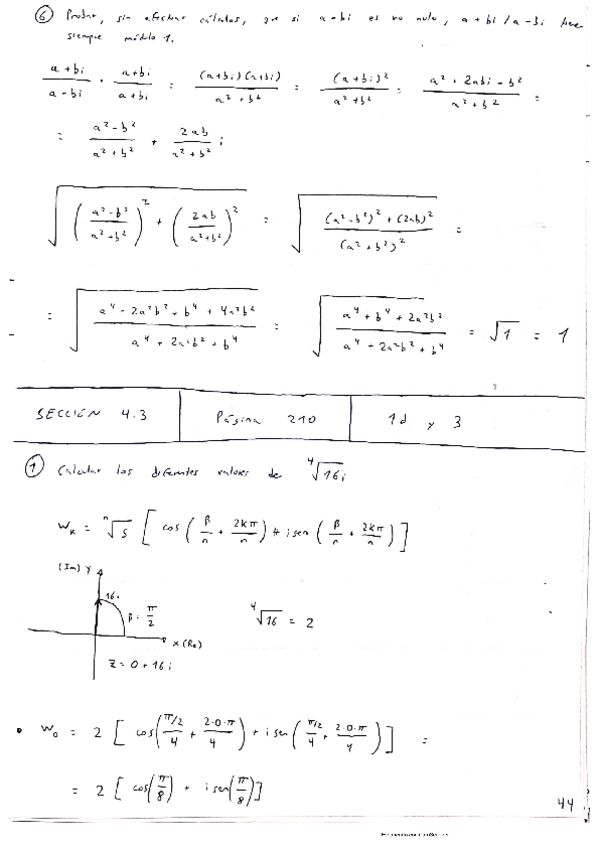 ⑥ Probar, sin efectuar cálculos, que si a+bi es no nulo, a+bi/a-bi tiene
siempre módulo 1.
(a+bi)/(a-bi) · (a+bi)/(a+bi) = ((a+bi)(a+bi))/(a²+b²) = (a+bi)²/(a²+b²) = (a²+2abi-b²)/(a²+b²) =
= (a²-b²)/(a²+b²) + (2ab)/(a²+b²) i
√(((a²-b²)/(a²+b²))² + ((2ab)/(a²+b²))²) = √(((a²-b²)²+(2ab)²)/(a²+b²)²) =
= √((a⁴-2a²b²+b⁴+4a²b²)/(a⁴+2a²b²+b⁴)) = √((a⁴+b⁴+2a²b²)/(a⁴+2a²b²+b⁴)) = √1 = 1
SECCIÓN 4.3 Página 210 1d y 3
① Calcular los diferentes valores de ⁴√16i
Wₖ = ⁿ√s [cos(β/n + 2kπ/n) + i sen(β/n + 2kπ/n)]
(Im) Y
16i
β = π/2
X (Re)
Z = 0+16i
⁴√16 = 2
• W₀ = 2 [cos((π/2)/4 + (2·0·π)/4) + i sen((π/2)/4 + (2·0·π)/4)] =
= 2 [cos(π/8) + i sen(π/8)]
44